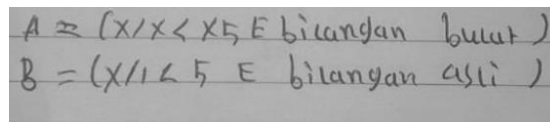 A = (x/x < x5, E bilangan bulat)
B = (x/1 < 5 E bilangan asli)